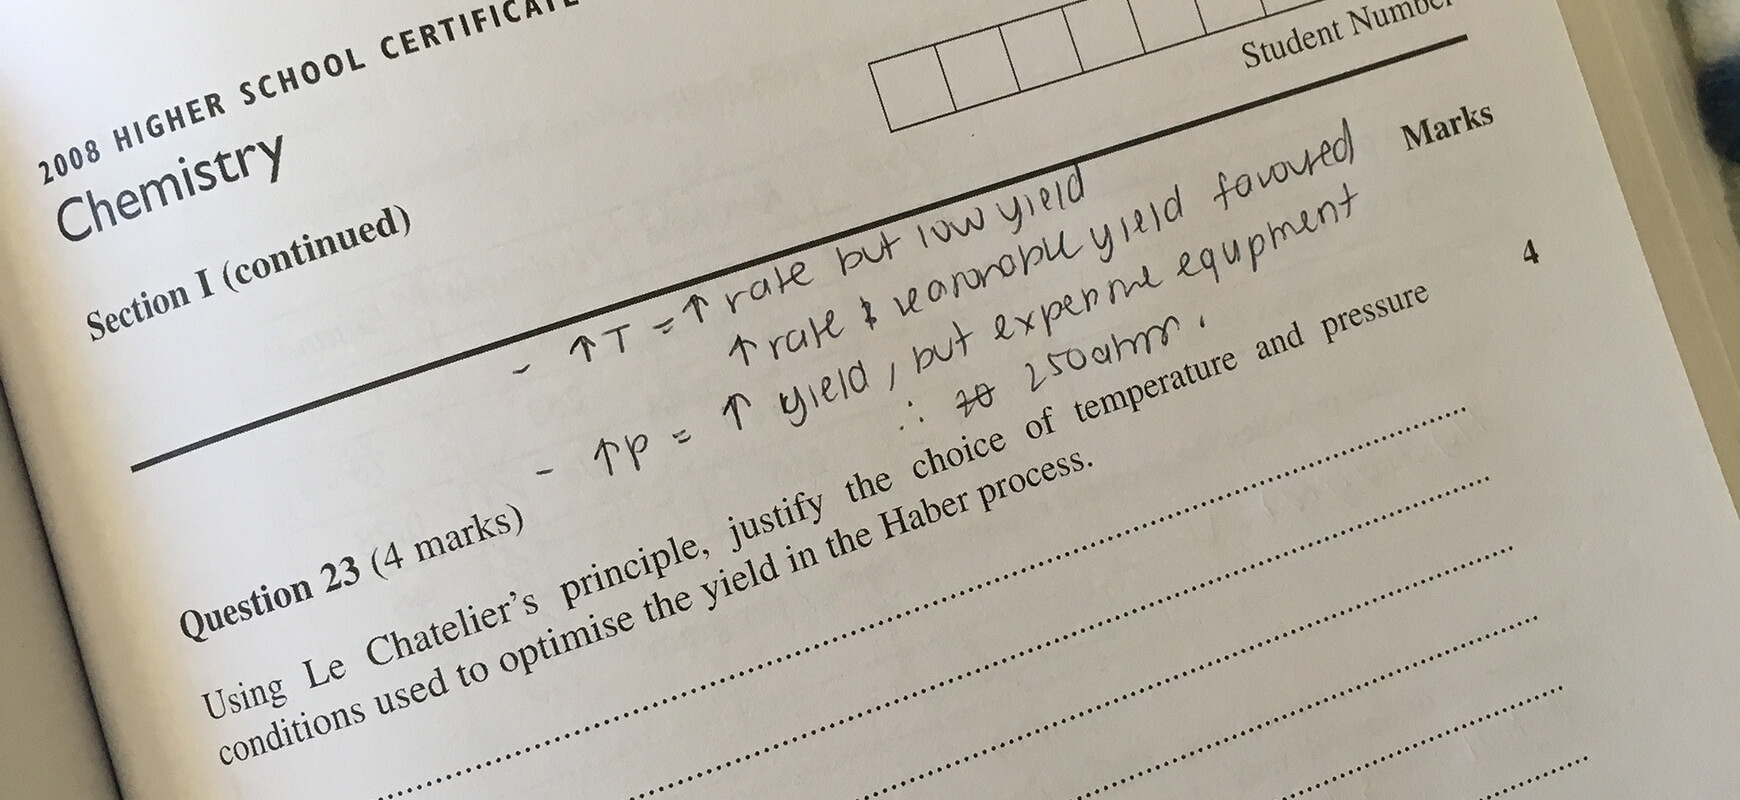 2008 HIGHER SCHOOL CERTIFICATE
Chemistry
Section I (continued)
Student Number
Marks
- ↑T = ↑ rate but low yield
↑ rate & reasonable yield favoured
- ↑P = ↑ yield, but expensive equpment
∴ 250atm.
Question 23 (4 marks)
4
Using Le Chatelier's principle, justify the choice of temperature and pressure
conditions used to optimise the yield in the Haber process.